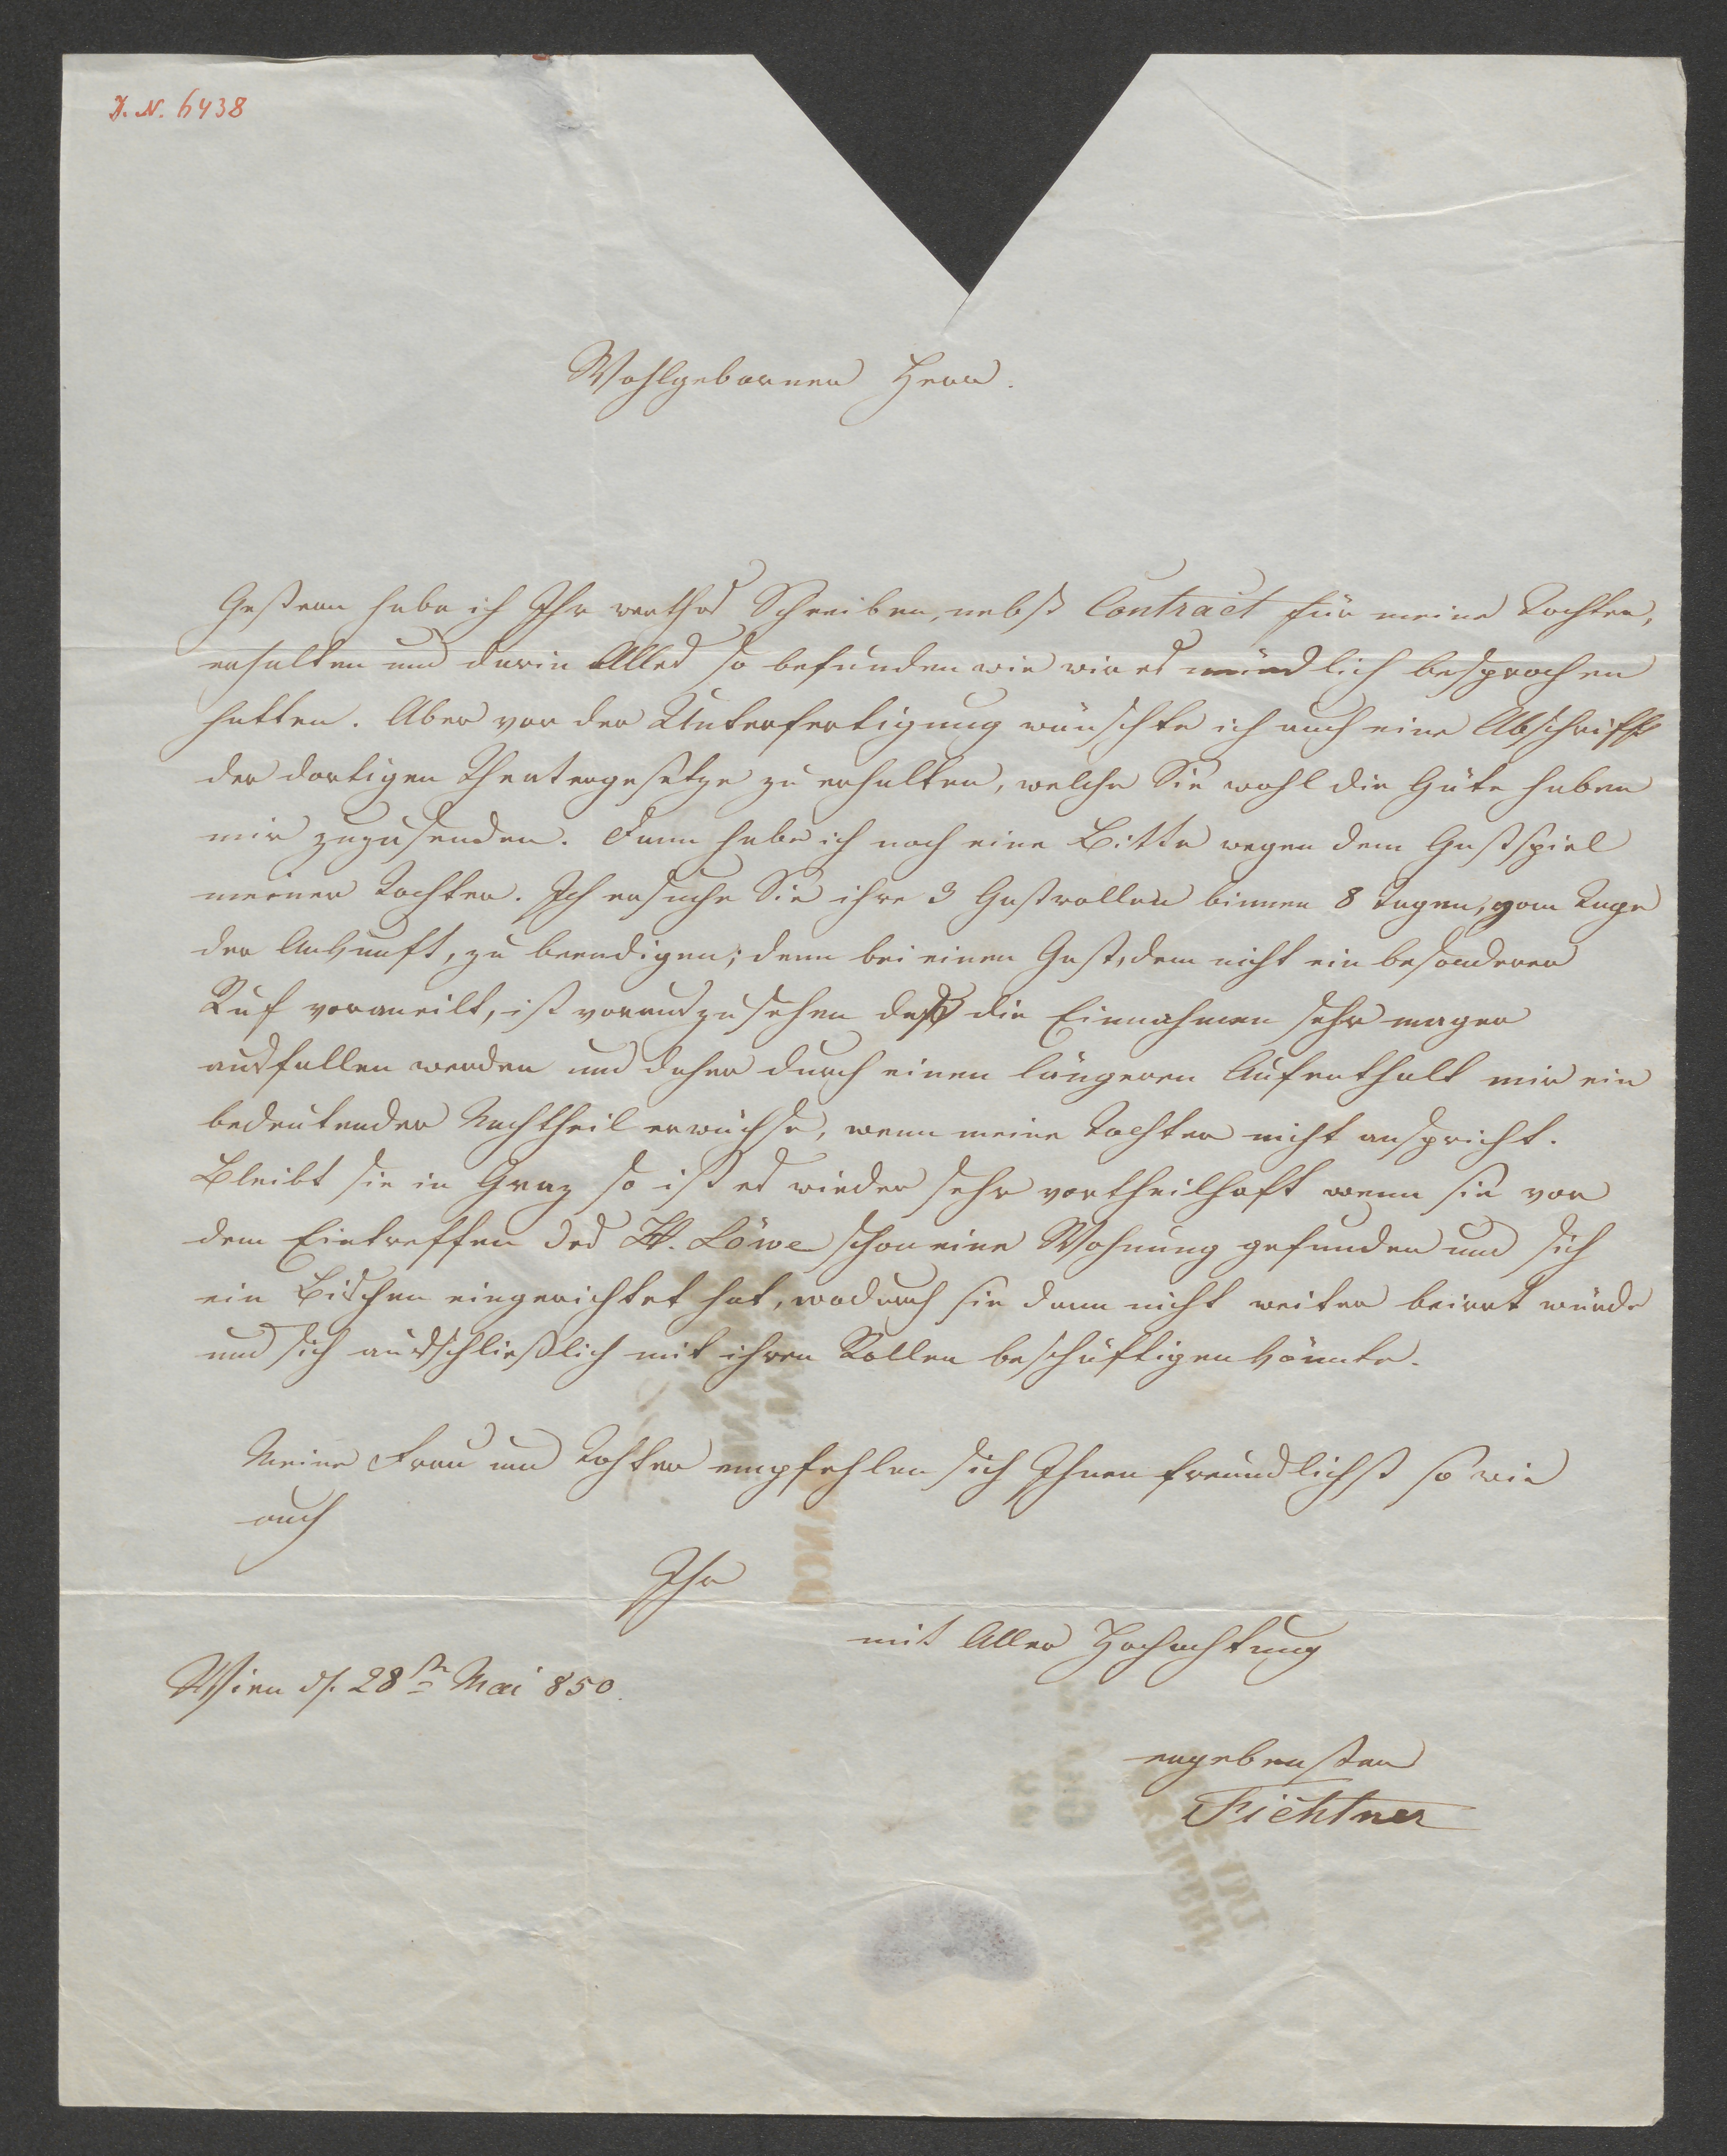 J. N. 6438
Wohlgeborner Herr.
Gestern habe ich Ihr werthes Schreiben, nebst Contract für meine Tochter,
erhalten und darin Alles so befunden wie wir es mündlich besprochen
hatten. Aber vor der Unterfertigung wünschte ich auch eine Abschrift
der dortigen Theatergesetze zu erhalten, welche Sie wohl die Güte haben
mir zuzusenden. Dann habe ich noch eine Bitte wegen dem Gastspiel
meiner Tochter. Ich ersuche Sie ihre 3 Gastrollen binnen 8 Tagen, vom Tage
der Ankunft, zu beendigen; denn bei einem Gast, dem nicht ein besonderer
Ruf voraneilt, ist vorauszusehen daß die Einnahmen sehr mager
ausfallen werden und daher durch einen längeren Aufenthalt mir ein
bedeutender Nachtheil erwüchse, wenn meine Tochter nicht anspricht.
Bleibt sie in Graz so ist es wieder sehr vortheilhaft wenn sie vor
dem Eintreffen des H. Löwe schon eine Wohnung gefunden und sich
ein Bischen eingerichtet hat, wodurch sie dann nicht weiter beirrt würde
und sich ausschließlich mit ihren Rollen beschäftigen könnte.
Meine Frau und Tochter empfehlen sich Ihnen freundlichst so wie
auch
Ihr
mit Aller Hochachtung
Wien d. 28tn Mai 850.
ergebenster
Fichtner